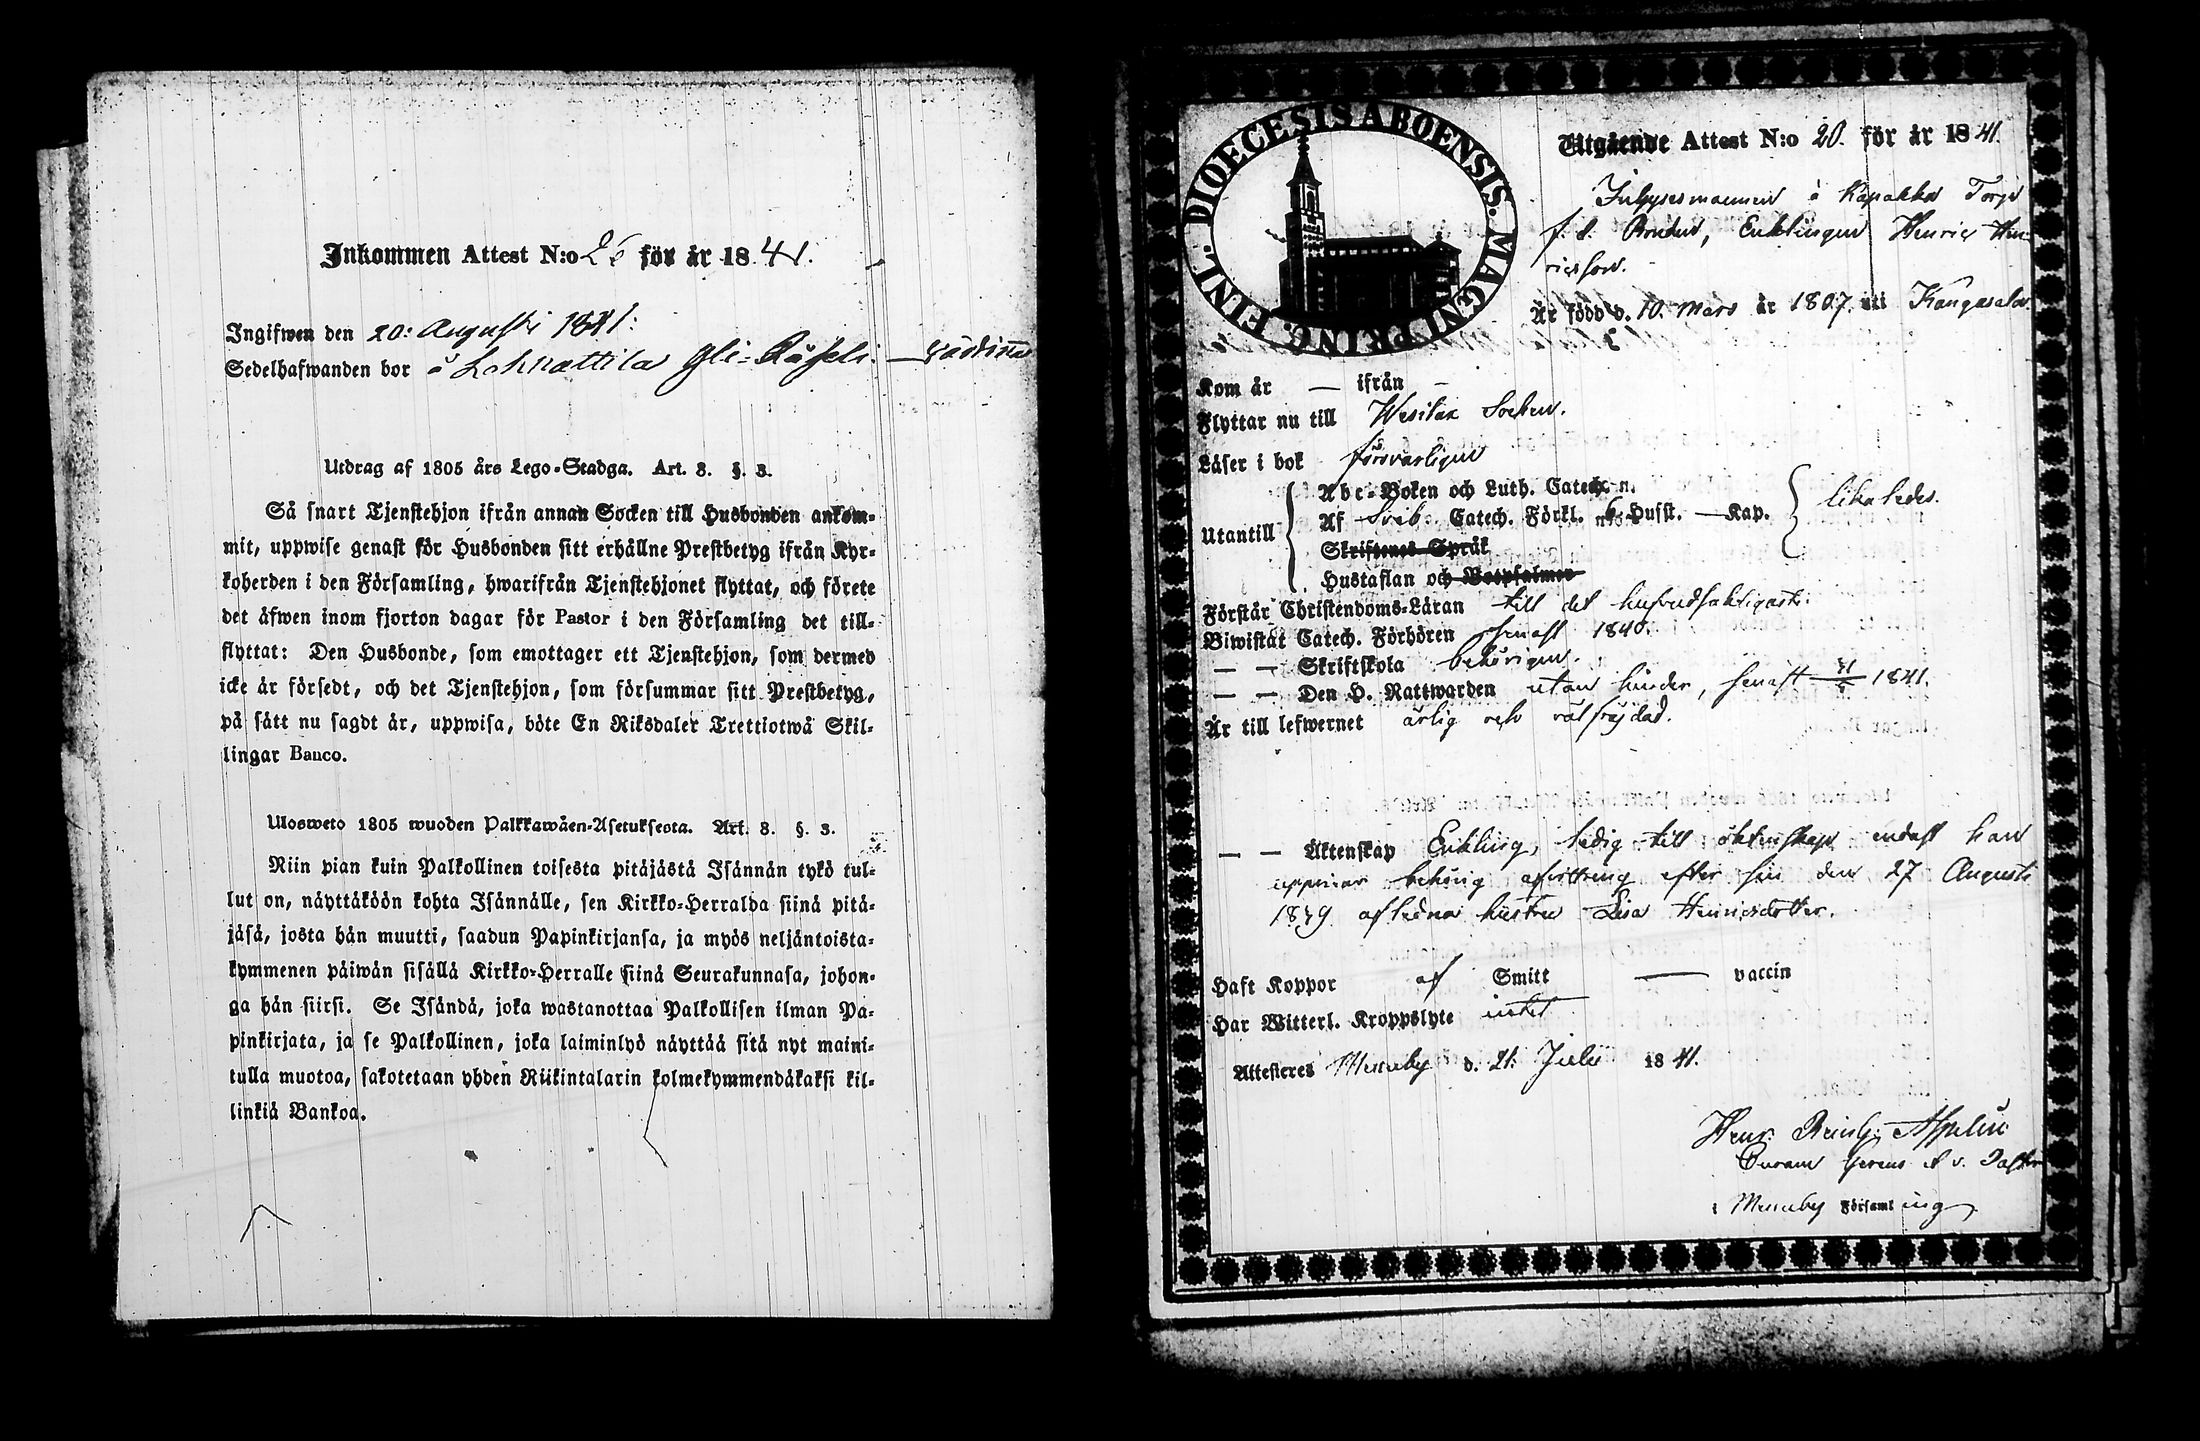 Inkommen Attest N:o 26 för år 1841.
Ingifwen den 20: Augusti 1841:
Sedelhafwanden bor å Lohnattila
Utdrag af 1805 års Lego-Stadga. Art. 8. §. 3.
Så snart Tjenstehjon ifrån annan Socken till Husbonden ankom-
mit, uppwise genast för Husbonden sitt erhållne Prestbetyg ifrån Kyr-
koherden i den Församling, hwarifrån Tjenstehjonet flyttat, och förete
det äfwen inom fjorton dagar för Pastor i den Församling det till-
flyttat: Den Husbonde, som emottager ett Tjenstehjon, som dermed
icke är försedt, och det Tjenstehjon, som försummar sitt Prestbetyg,
på sätt nu sagdt är, uppwisa, böte En Riksdaler Trettiotwå Skil-
lingar Banco.
Ulosweto 1805 wuoden Palkkawäen-Asetuksesta. Art. 8. §. 3.
Niin pian kuin Palkollinen toisesta pitäjästä Isännän tykö tul-
lut on, näyttäköön kohta Isännälle, sen Kirkko-Herralda siinä pitä-
jäsä, josta hän muutti, saadun Papinkirjansa, ja myös neljäntoista-
kymmenen päiwän sisällä Kirkko-Herralle siinä Seurakunnasa, johon-
ga hän siirsi. Se Isändä, joka wastanottaa Palkollisen ilman Pa-
pinkirjata, ja se Palkollinen, joka laiminlyö näyttää sitä nyt maini-
tulla muotoa, sakotetaan yhden Riikintalarin kolmekymmendäkaksi kil-
linkiä Bankoa.
FINL. DIOECESIS ABOENSIS. MAGNI PRINC.
Utgående Attest N:o 20. för år 1841.
Inhysesmannen å Kapakka Torp
f. d. Bonden, Enklingen Henric Hen-
ricsson.
Är född d. 10. Mars år 1807. uti Kangasala
Kom år — ifrån —
Flyttar nu till Wesilax Socken.
Läser i bok försvarligen
Utantill Abc-Boken och Luth. Catech. n.
Af Sveb. Catech. Förkl. Husst. — Kap. likaledes.
Skriftenes Språk
Hustaflan och Botpsalmer
Förstår Christendoms-Läran till det hufvudsakligaste.
Biwistat Catech. Förhören senast 1840.
— — Skriftskola behörigen.
— — Den H. Nattwarden utan hinder, senast 1841.
Är till lefwernet ärlig och rättfrejdad.
— — Äktenskap Enkling, ledig till äktenskap endast han
uppvisar behörig afvittring efter sin den 27 Augusti
1839 aflidna hustru Lisa Henricsdotter.
Haft Koppor af Smitt — vaccin
Har Witterl. Kroppslyte intet
Attesteres Messuby d. 21. Julii 1841.
Henr. Reinh. Aspelin
Curam gerens et v. Pastor
i Messuby Församling